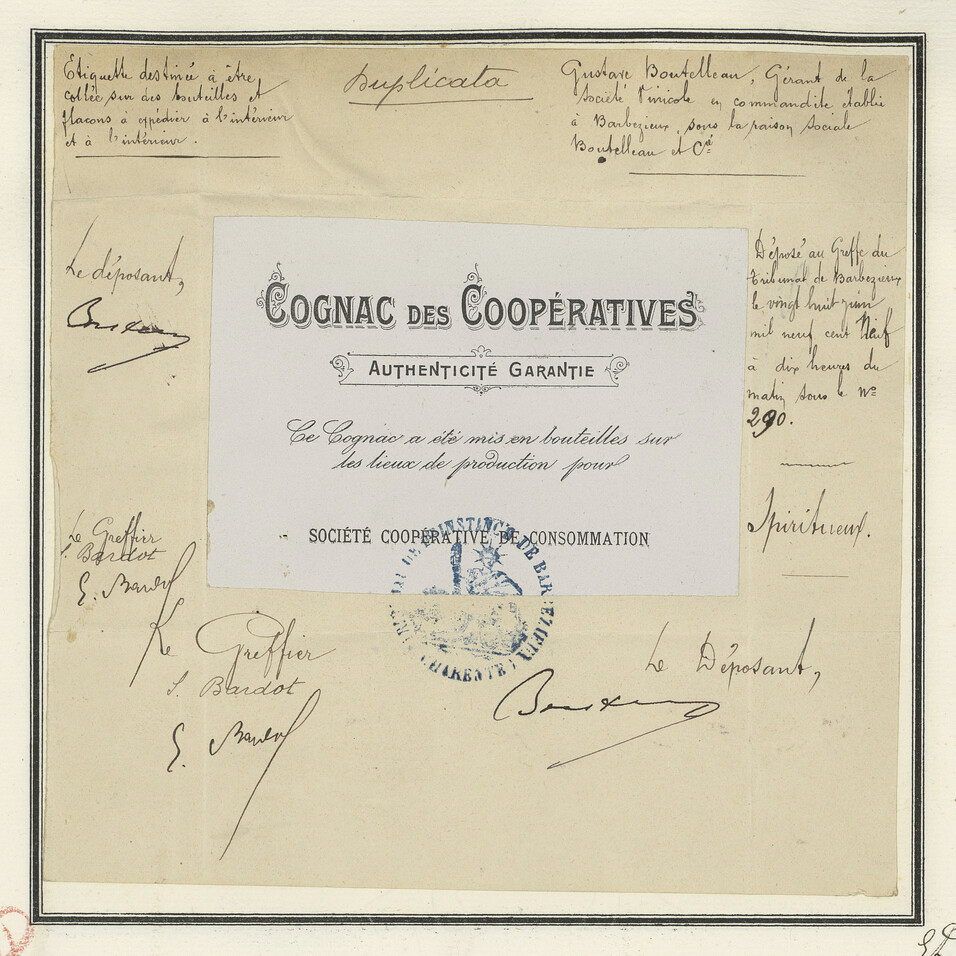 Etiquette destinée à être
collée sur des bouteilles et
flacons à expédier à l'intérieur
et à l'intérieur.
Duplicata
Gustave Boutelleau, Gérant de la
Société Vinicole en commandite établie
à Barbezieux, sous la raison sociale
Boutelleau et Cie
Le déposant,
COGNAC DES COOPÉRATIVES
AUTHENTICITÉ GARANTIE
Ce Cognac a été mis en bouteilles sur
les lieux de production pour
SOCIÉTÉ COOPÉRATIVE DE CONSOMMATION
Déposé au Greffe du
Tribunal de Barbezieux
le vingt huit juin
mil neuf cent Neuf
à dix heures du
matin sous le No
290.
Spiritueux.
Le Greffier
S. Bardot
E. Bardot
DE 1re INSTANCE DE BARBEZIEUX
CHARENTE
Le Greffier
S. Bardot
E. Bardot
Le Déposant,